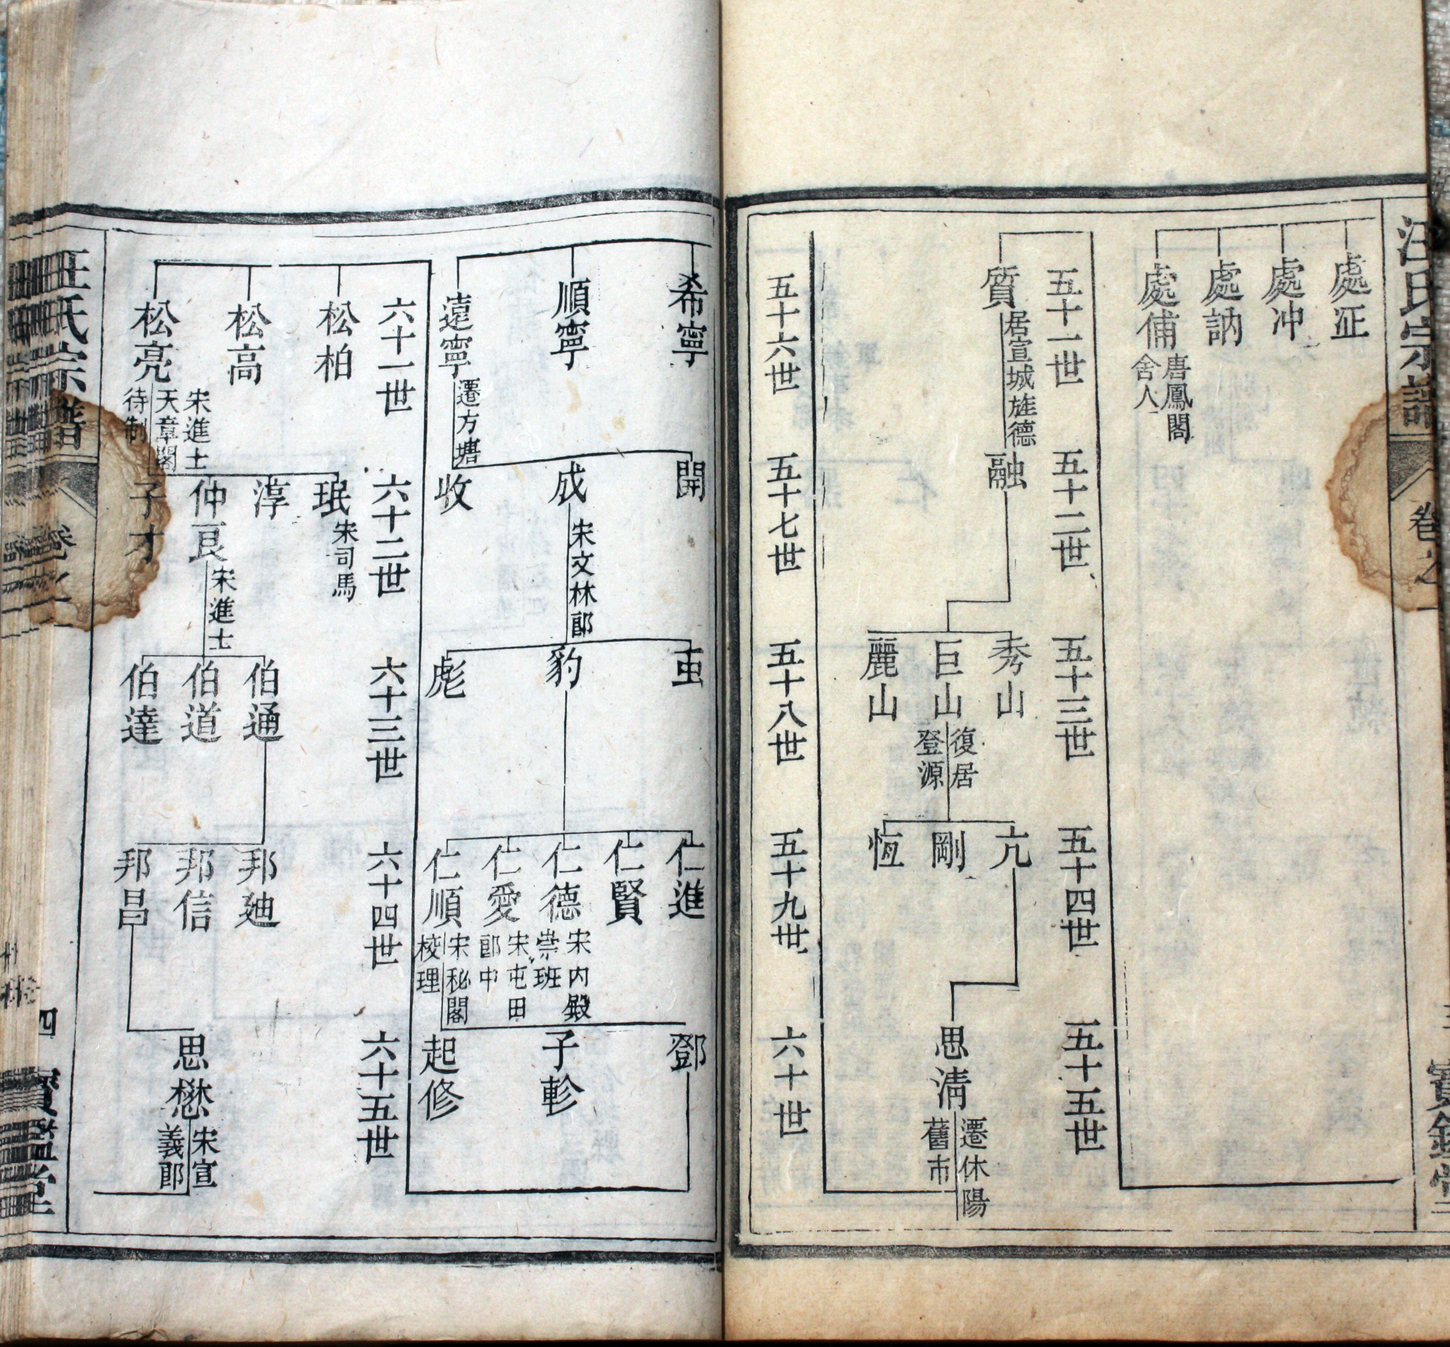 汪氏宗譜
卷之一
處沚
處冲
處訥
處俌
唐鳳閣
舍人
五十一世
五十二世
五十三世
五十四世
五十五世
質
居宣城旌德
融
秀山
巨山
復居
登源
麗山
亢
剛
恆
思清
遷休陽
舊市
五十六世
五十七世
五十八世
五十九世
六十世
希寧
順寧
遠寧
遷方塘
開
成
宋文林郎
收
豹
彪
仁進
仁賢
仁德
宋內殿
崇班
仁愛
宋屯田
郎中
仁順
宋秘閣
校理
鄧
子軫
起修
六十一世
六十二世
六十三世
六十四世
六十五世
松柏
松高
松亮
宋進士
天章閣
待制
珉
宋司馬
淳
仲良
宋進士
子才
伯通
伯道
伯達
邦廸
邦信
邦昌
思懋
宋宣
義郎
汪氏宗譜
卷之一
四
寶鑑堂